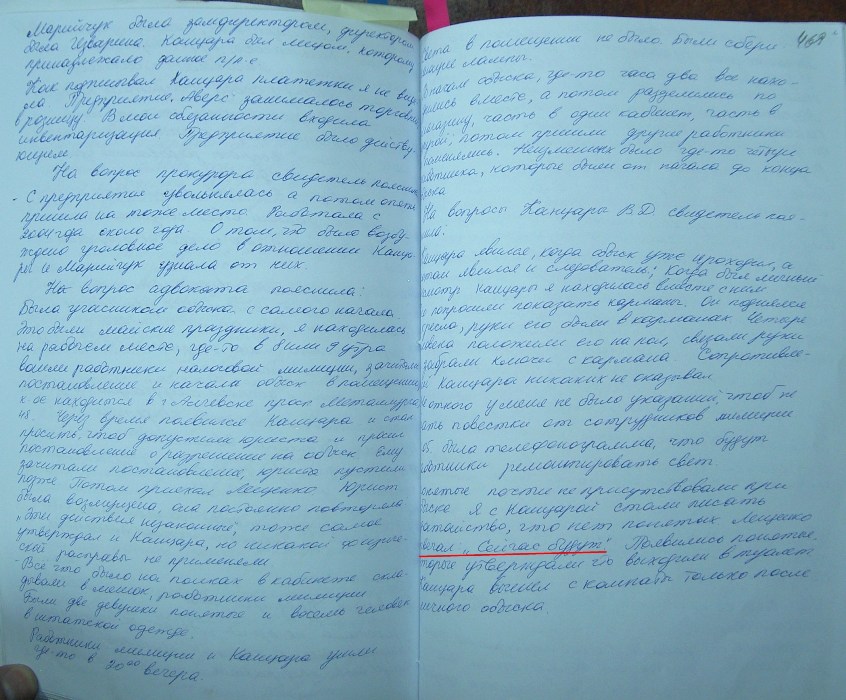 Марийчук была замдиректором, директором
была Чеварина. Канцара был лицом, которому
принадлежало данное пр-е.
Как подписывал Канцара платежки я не виде
ла Предприятие "Аверс" занималось торговле
в розницу. В мои обязанности входила
инвентаризация. Предприятие было действу-
ющем
На вопрос прокурора свидетель пояснил
- С предприятия увольнялась а потом опять
пришла на тоже место. Работала с
2004 года около года. О том, что было возбу-
ждено уголовное дело в отношении Канца-
ры и Марийчук узнала от них.
На вопрос адвоката пояснила:
Была участником обыска с самого начала.
Это были майские праздники, я находилась
на рабочем месте, где-то в 8 или 9 утра
вошли работники налоговой милиции, зачитали
постановление и начали обыск в помещении
к ое находится в г Алчевске просп Металлургов
48. Через время появился Канцара и стал
просить, чтоб допустили юриста и прочли
постановление о разрешении на обыск. Ему
зачитали постановление, юриста пустили
позже Потом приехал Мещенко. Юрист
была возмущена, она постоянно повторяла
"Эти действия незаконные", тоже самое
утверждал и Канцара, но никакой физиче-
ской расправы не применяли
- Все что было на полках в кабинете скла-
дывали в мешок, работники милиции
Были две девушки понятые и восемь человек
в штатской одежде.
Работники милиции и Канцара ушли
где-то в 20⁰⁰ вечера.
469
Света в помещении не было. Были сбере
гающие лампы.
В начале обыска, где-то часа два все нахо-
дились вместе, а потом разделились по
магазину, часть в один кабинет, часть в
другой, потом пришли другие работники
поменялись. Неизменных было где-то четыре
работника, которые были от начала до конца
обыска
На вопросы Канцара В.Д. свидетель поя-
нила:
Канцара явился, когда обыск уже проходил, а
потом явился и следователь; Когда был личный
осмотр Канцары я находилась вместе с ним
и попросили показать карманы. Он поднялся
кресла, руки его были в карманах Четыре
человека положили его на пол, связали руки
забрали ключи с кармана. Сопротивле-
ний Канцара никаких не оказывал
кого у меня не было указаний, чтоб не
брать повестки от сотрудников милиции
05. была телефонограмма, что будут
работники ремонтировать свет.
Понятые почти не присутствовали при
обыске я с Канцарой стали писать
ходатайство, что нет понятых Мещенко
отвечал "Сейчас будут". Появились понятые
которые утверждали что выходили в туалет
Канцара вышел с комнаты только после
личного обыска.